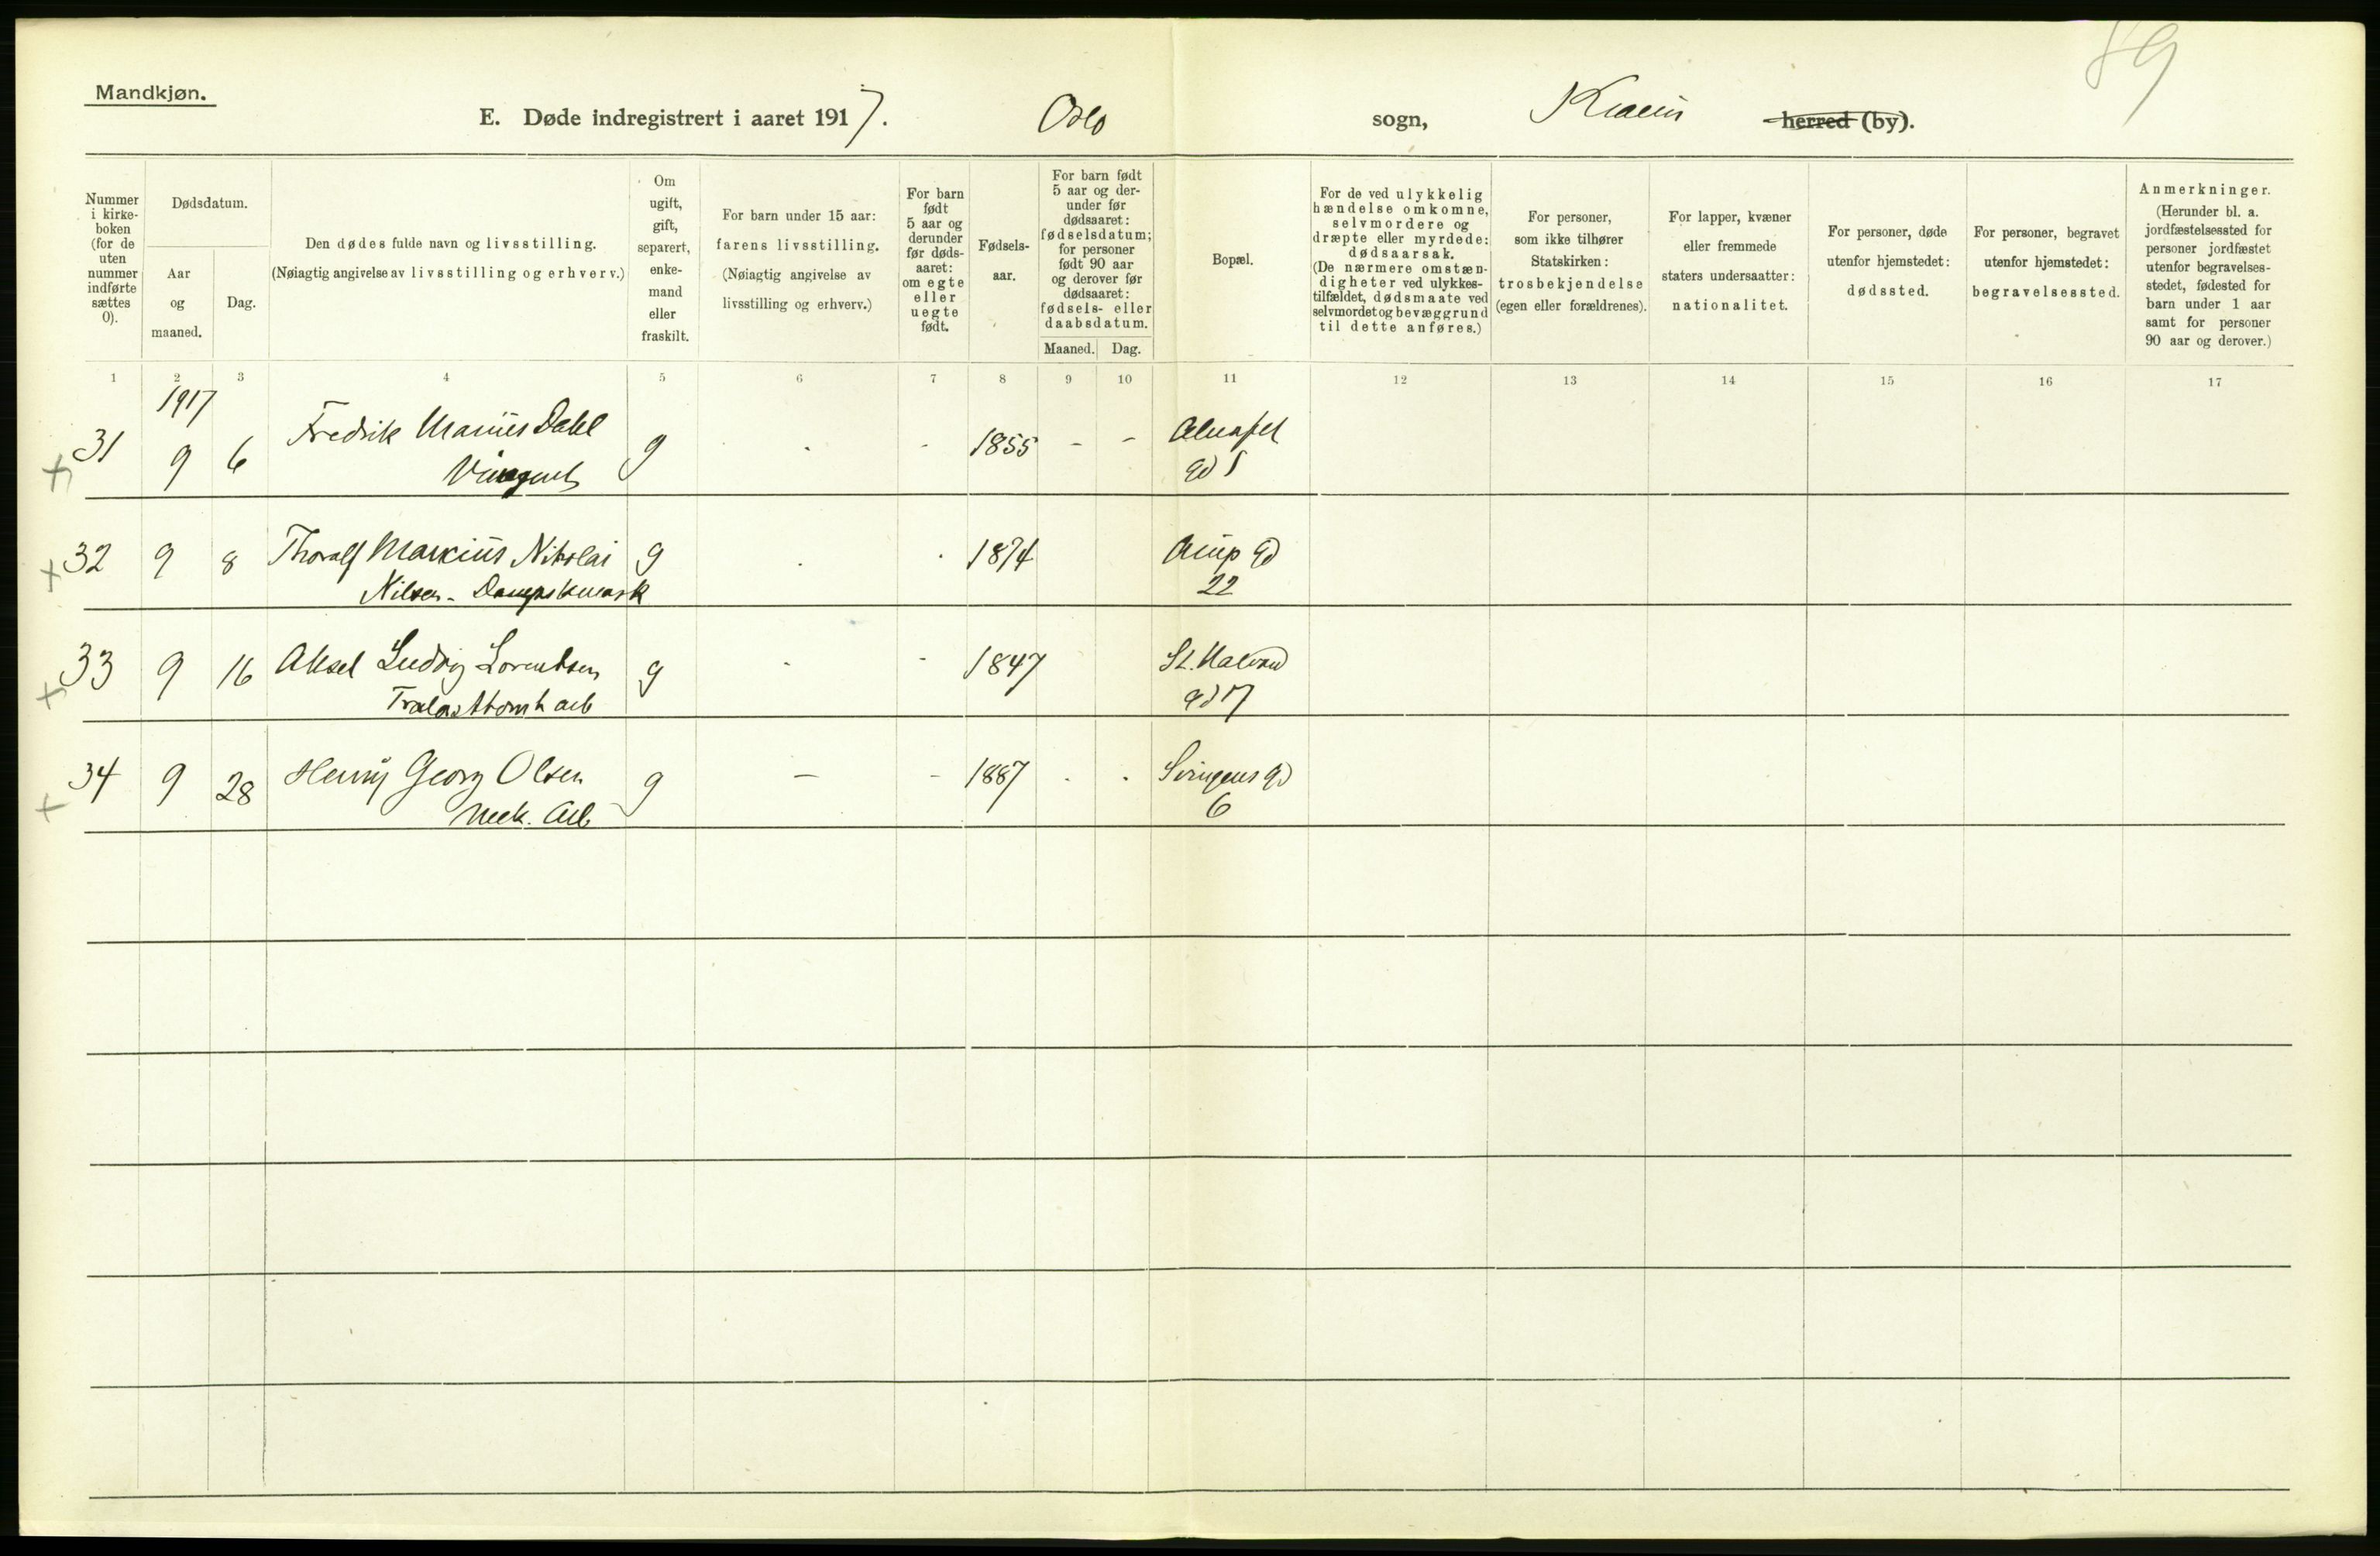 89
Mandkjøn.
E. Døde indregistrert i aaret 1917. Oslo sogn, herred (by).
Nummer i kirke-boken (for de uten nummer indførte sættes 0).
Dødsdatum.
Aar og maaned.
Dag.
Den dødes fulde navn og livsstilling.
(Nøiagtig angivelse av livsstilling og erhverv.)
Om ugift, gift, separert, enke-mand eller fraskilt.
For barn under 15 aar:
farens livsstilling.
(Nøiagtig angivelse av
livsstilling og erhverv.)
For barn født 5 aar og derunder før døds-aaret: om egte eller uegte født.
Fødsels-aar.
For barn født 5 aar og der-under før dødsaaret: fødselsdatum; for personer født 90 aar og derover før dødsaaret: fødsels- eller daabsdatum.
Maaned. Dag.
Bopæl.
For de ved ulykkelig hændelse omkomne, selvmordere og dræpte eller myrdede: dødsaarsak.
(De nærmere omstæn-digheter ved ulykkes-tilfældet, dødsmaate ved selvmordet og bevæggrund til dette anføres.)
For personer, som ikke tilhører Statskirken: trosbekjendelse (egen eller forældrenes).
For lapper, kvæner eller fremmede staters undersaatter: nationalitet.
For personer, døde utenfor hjemstedet: dødssted.
For personer, begravet utenfor hjemstedet: begravelsessted.
Anmerkninger.
(Herunder bl. a. jordfæstelsessted for personer jordfæstet utenfor begravelses-stedet, fødested for barn under 1 aar samt for personer 90 aar og derover.)
1 2 3 4 5 6 7 8 9 10 11 12 13 14 15 16 17
1917
31 9 6 Fredrik Marius Dahl g . - 1855 - -
32 9 8 Thoralf Markius Nikolai g . . 1874
Nilsen - 22
33 9 16 Aksel Ludvig Lorentsen g - - 1847 St. Halvard
gd 7
34 9 28 Henry Georg Olsen g - - 1887 . . gd
Mek. Arb 6